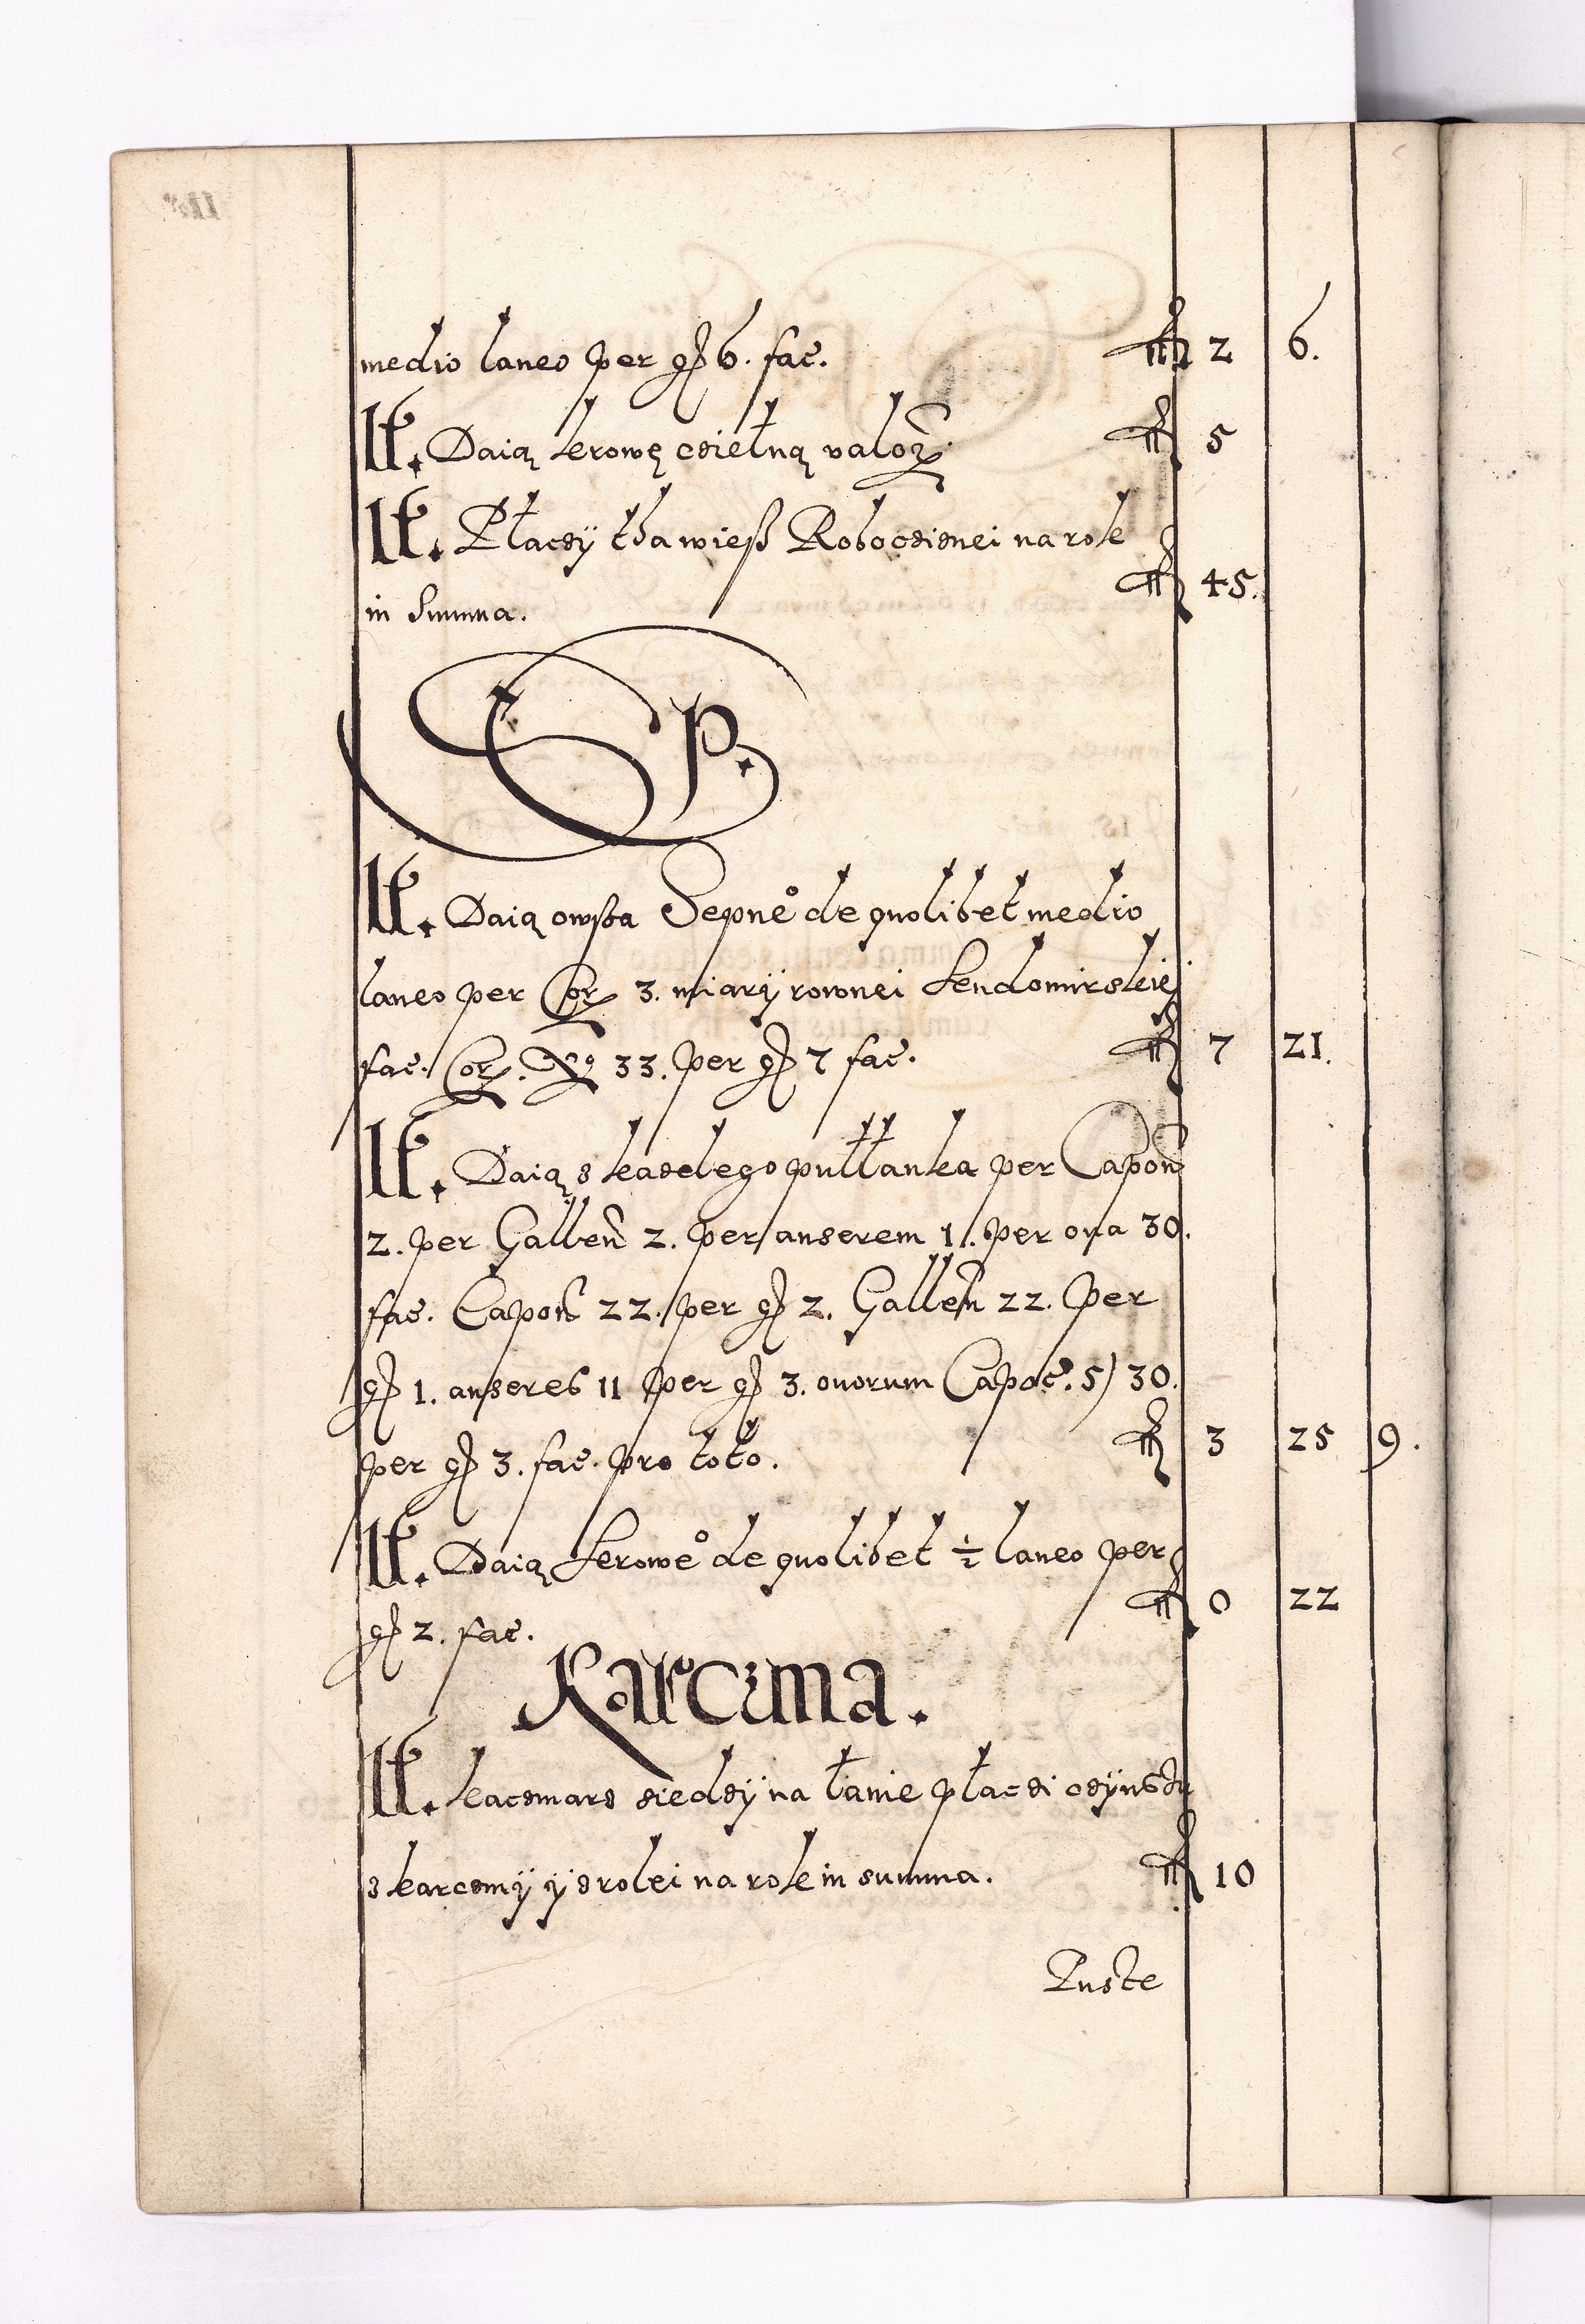 medio laneo per gr 6. fac. fl 2 6.
It. Daią krowę czielną valoꝝ. fl 5
It. Płaczÿ tha wieß Robocziznei na rok
in Summa. fl 45.
P.
It. Daią owsa Sepnẻ de quolibet medio
laneo per Cor 3. miarÿ rownei Sendomirskiej
fac. Cor. No 33. per gr 7 fac. fl 7 21.
It. Daią z kazdego pułłanka per Capoñ
2. per Galleñ 2. per anserem 1. per ova 30.
fac. Capoñ 22. per gr 2. Galleñ 22. per
gr 1. anseres 11 per gr 3. ovorum Capoc. 5) 30.
per gr 3. fac. pro toto. fl 3 25 9.
It. Daią Serowe de quolibet ½ laneo per
gr 2. fac. fl 0 22
Karczma.
It. kaczmarz siedzÿ na łanie płaczi czÿnszu
z karczmÿ ÿ z rolei na rok in summa. fl 10
Puste